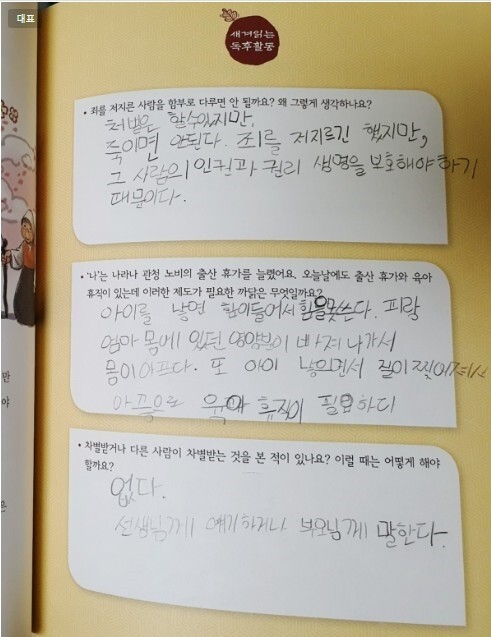 대표
새겨읽는
독후활동
• 죄를 저지른 사람을 함부로 다루면 안 될까요? 왜 그렇게 생각하나요?
처벌은 할수있지만,
죽이면 안되다. 죄를 저지르긴 했지만,
그 사람의 인권과 권리 생명을 보호해야 하기
때문이다.
• '나'는 나라나 관청 노비의 출산 휴가를 늘렸어요. 오늘날에도 출산 휴가와 육아
휴직이 있는데 이러한 제도가 필요한 까닭은 무엇일까요?
아이를 낳면 힘이들어서 힘을못쓴다. 피랑
엄마 몸에 있던 영양분이 빠져 나가서
몸이아프다. 또 아이 낳으면서 질이
육아 휴직이 필요하디
• 차별받거나 다른 사람이 차별받는 것을 본 적이 있나요? 이럴 때는 어떻게 해야
할까요?
없다.
선생님께 얘기하거나 부모님께 말한다.
만
야
은